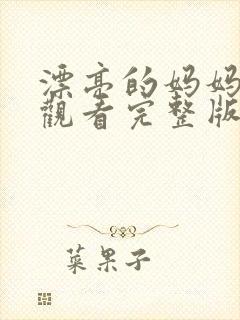 漂亮的妈妈
觀看完整版
菜果子